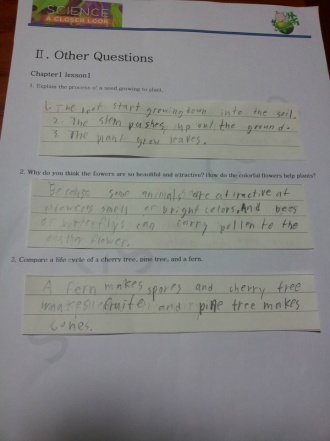 SCIENCE
A CLOSER LOOK
II. Other Questions
Chapter1 lesson1
1. Explain the process of a seed growing to plant.
1. The root start growing down into the soil.
2. The stem pushes up out the ground.
3. The plant grow leaves.
2. Why do you think the flowers are so beautiful and attractive? How do the colorful flowers help plants?
Because some animals are attractive at
flowers smell or bright colors. And bees
or butterflys can carry pollen to the
flower.
3. Compare a life cycle of a cherry tree, pine tree, and a fern.
A fern makes spores and cherry tree
makes fruite and pine tree makes
cones.